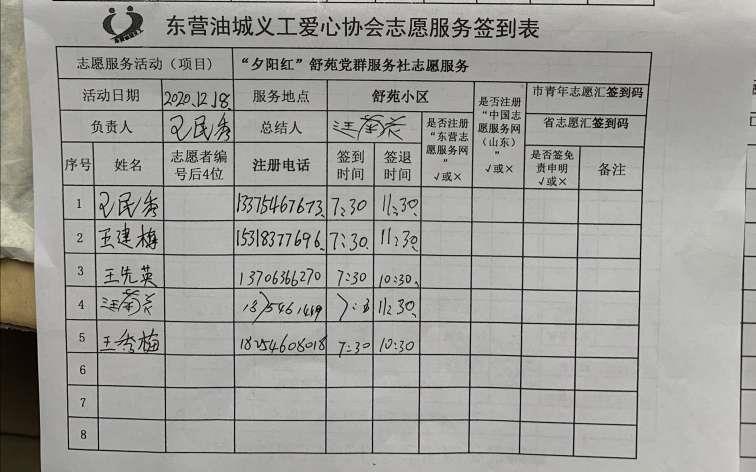 东营油城义工爱心协会志愿服务签到表
志愿服务活动（项目） “夕阳红”舒苑党群服务社志愿服务
活动日期 2020.12.18. 服务地点 舒苑小区 是否注册“东营志愿服务网” √或× 是否注册“中国志愿服务网（山东）” √或× 市青年志愿汇签到码
负责人 王民秀 总结人 省志愿汇签到码
序号 姓名 志愿者编号后4位 注册电话 签到时间 签退时间 是否签免责申明 √或× 备注
1 王民秀 13375467673. 7:30 11:30.
2 王建梅 15318377696. 7:30. 11:30.
3 王先英 13706366270 7:30 10:30.
4 11:30.
5 王秀梅 18254608018 7:30 10:30
6
7
8